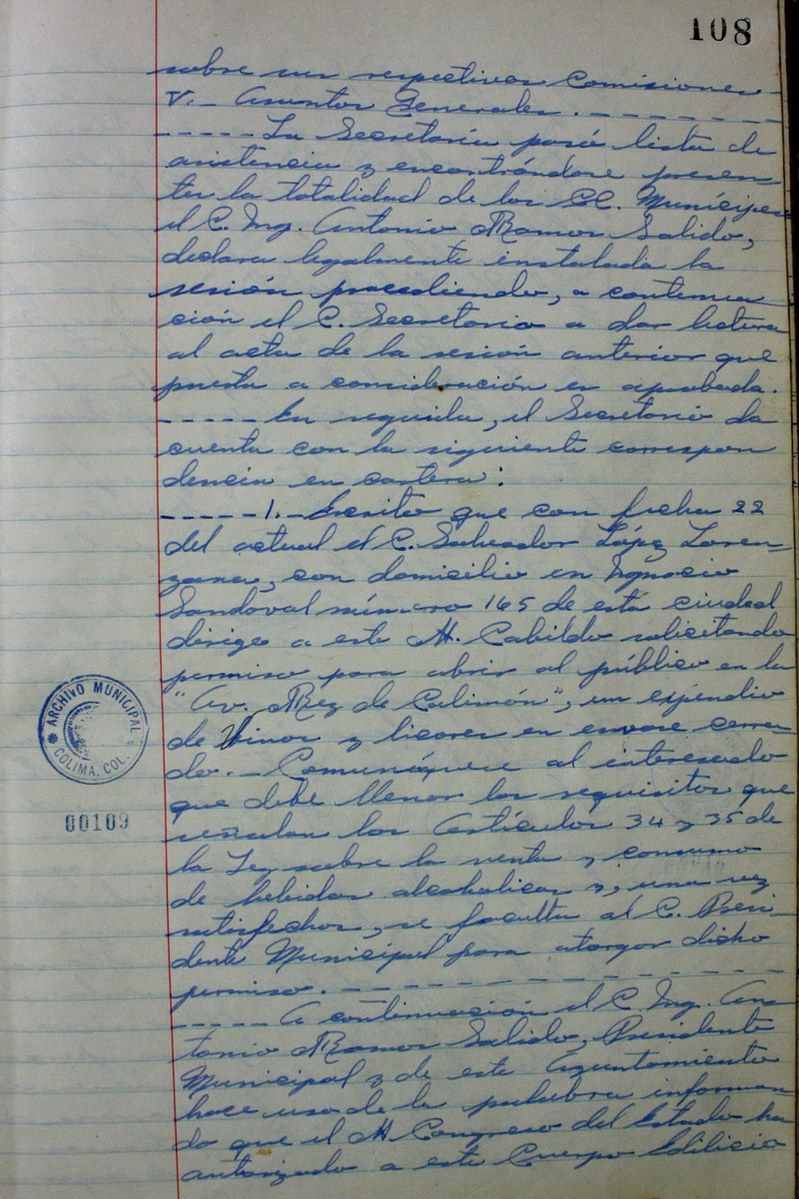 108
sobre sus respectivas Comisiones
V.- Asuntos Generales. - - - - - - -
- - - - - La Secretaría pasó lista de
asistencia y encontrándose presen-
tes la totalidad de los CC. Munícipes
el C. Ing. Antonio Ramos Salido,
declara legalmente instalada la
sesión procediendo, a continua
ción el C. Secretario a dar lectura
al acta de la sesión anterior que
puesta a consideración es aprobada.
- - - - - En seguida, el Secretario da
cuenta con la siguiente correspon
dencia en cartera:
- - - - - 1.- Escrito que con fecha 22
del actual el C. Salvador López Loren-
zana, con domicilio en Ignacio
Sandoval número 165 de esta ciudad
dirige a este H. Cabildo solicitando
permiso para abrir al público en la
"Av. Rey de Colimán", un expendio
de Vinos y licores en envase cerra
do.- Comuníquese al interesado
que debe llenar los requisitos que
señalan los Artículos 34 y 35 de
la Ley sobre la venta y consumo
de bebidas alcoholicas y, una vez
satisfechos, se faculta al C. Presi-
dente Municipal para otorgar dicho
permiso. - - - - - - - - - - - - - - -
- - - - - A continuación el C. Ing. An-
tonio Ramos Salido, Presidente
Municipal y de este Ayuntamiento
hace uso de la palabra informan
do que el H. Congreso del Estado ha
autorizado a este Cuerpo Edilicio
ARCHIVO MUNICIPAL
COLIMA, COL.
00109